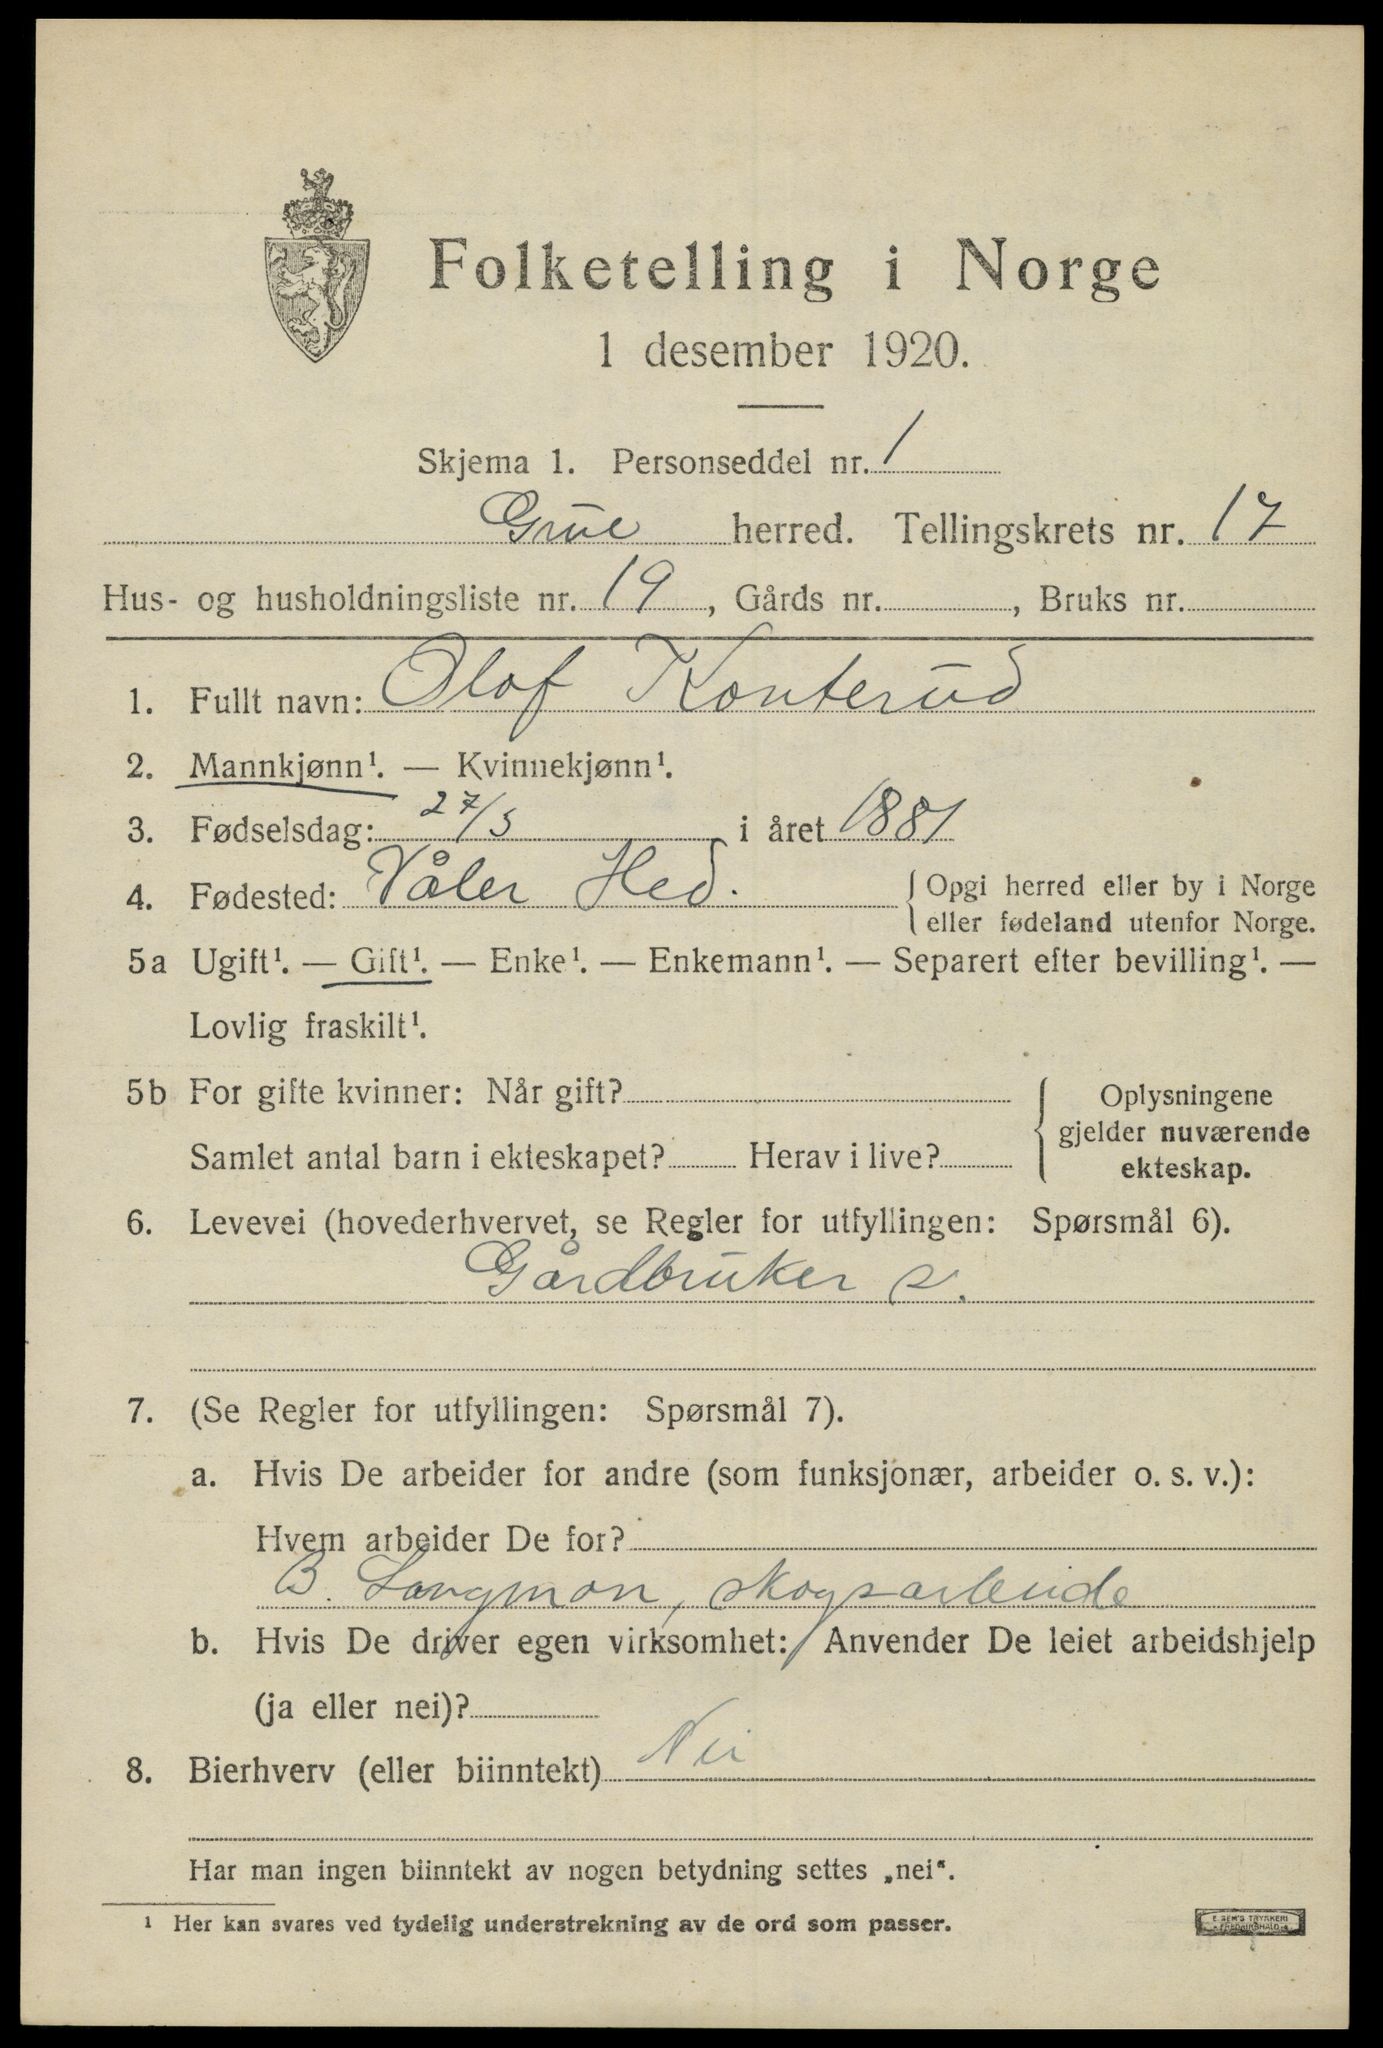 Folketelling i Norge
1 desember 1920.
Skjema 1. Personseddel nr. 1
Grue herred. Tellingskrets nr. 17
Hus- og husholdningsliste nr. 19, Gårds nr. , Bruks nr.
1. Fullt navn: Olof Konterud
2. Mannkjønn¹. — Kvinnekjønn¹.
3. Fødselsdag: 27/5 i året 1881
4. Fødested: Våler Hed. { Opgi herred eller by i Norge
eller fødeland utenfor Norge.
5a Ugift¹. — Gift¹. — Enke¹. — Enkemann¹. — Separert efter bevilling¹. —
Lovlig fraskilt¹.
5b For gifte kvinner: Når gift?
Samlet antal barn i ekteskapet? Herav i live?
Oplysningene
gjelder nuværende
ekteskap.
6. Levevei (hovederhvervet, se Regler for utfyllingen: Spørsmål 6).
Gårdbruker s.
7. (Se Regler for utfyllingen: Spørsmål 7).
a. Hvis De arbeider for andre (som funksjonær, arbeider o. s. v.):
Hvem arbeider De for?
B. Langmon, skogsarbeide
b. Hvis De driver egen virksomhet: Anvender De leiet arbeidshjelp
(ja eller nei)?
8. Bierhverv (eller biinntekt) Nei
Har man ingen biinntekt av nogen betydning settes „nei“.
¹ Her kan svares ved tydelig understrekning av de ord som passer.
E. SEM'S TRYKKERI
FREDRIKSHALD